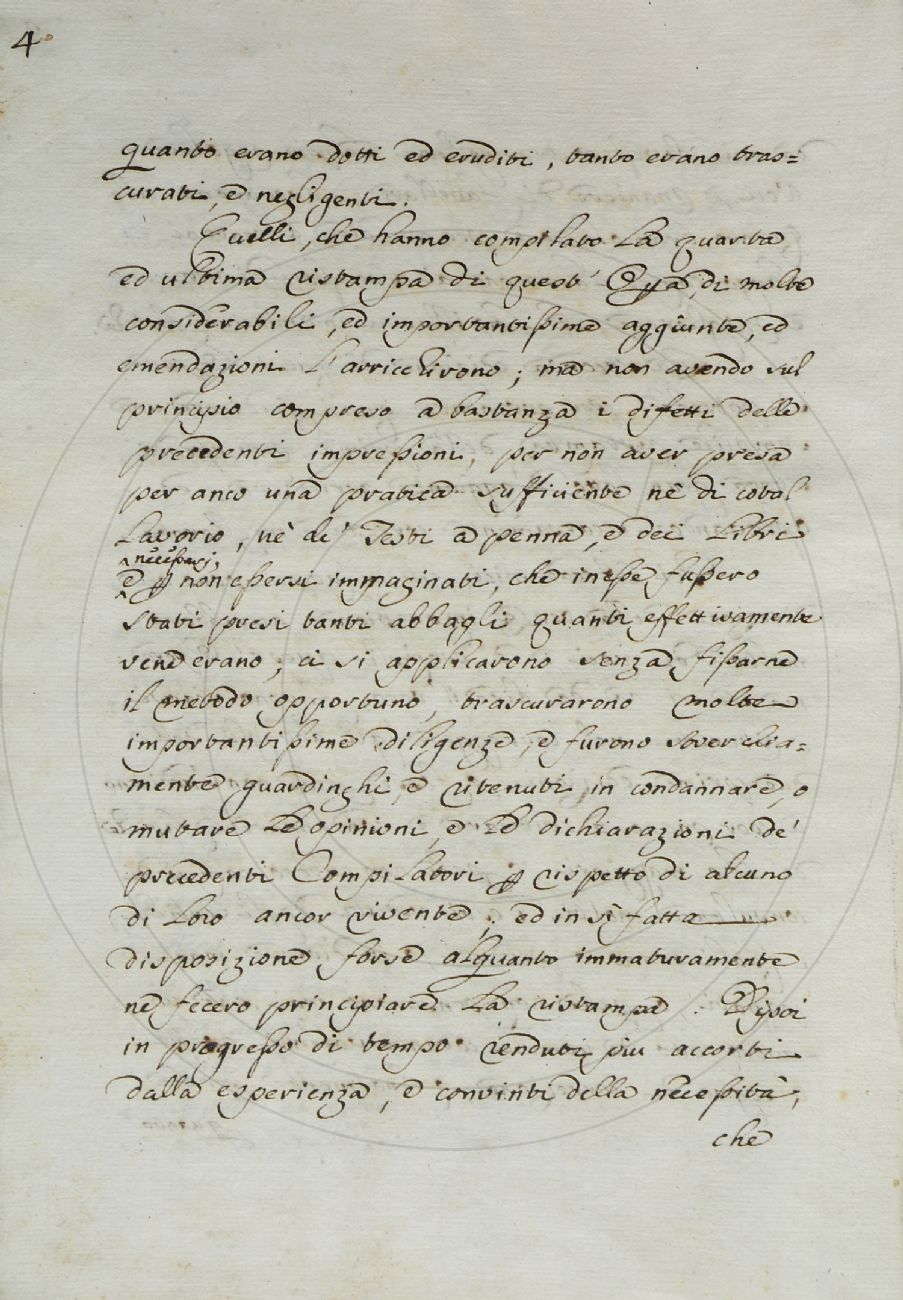 4
quanto erano dotti ed eruditi, tanto erano tras=
curati, e negligenti.
Quelli, che hanno compilato la quarta
ed ultima ristampa di quest' Opa, di molte
considerabili, ed importantissime aggiunte, ed
emendazioni l'arricchirono; ma non avendo sul
principio compreso a bastanza i difetti delle
precedenti impressioni, per non aver presa
per anco una pratica sufficiente nè di cotal
lavorio, nè de' Testi a penna, e dei Libri
necessarj,
e p non essersi immaginati, che in esse fussero
stati presi tanti abbagli quanti effettivamente
ven'erano; ci si applicarono senza fissarne
il metodo opportuno, trascurarono molte
importantissime diligenze, e furono soverchia=
mente guardinghi, e ritenuti in condannare, o
mutare le opinioni, e le dichiarazioni de'
precedenti Compilatori p rispetto di alcuno
di loro ancor vivente; ed in sì fatta
disposizione forse alquanto immaturamente
ne fecero principiare la ristampa. Dipoi
in progresso di tempo renduti più accorti
dalla esperienza, e convinti della necessità,
che